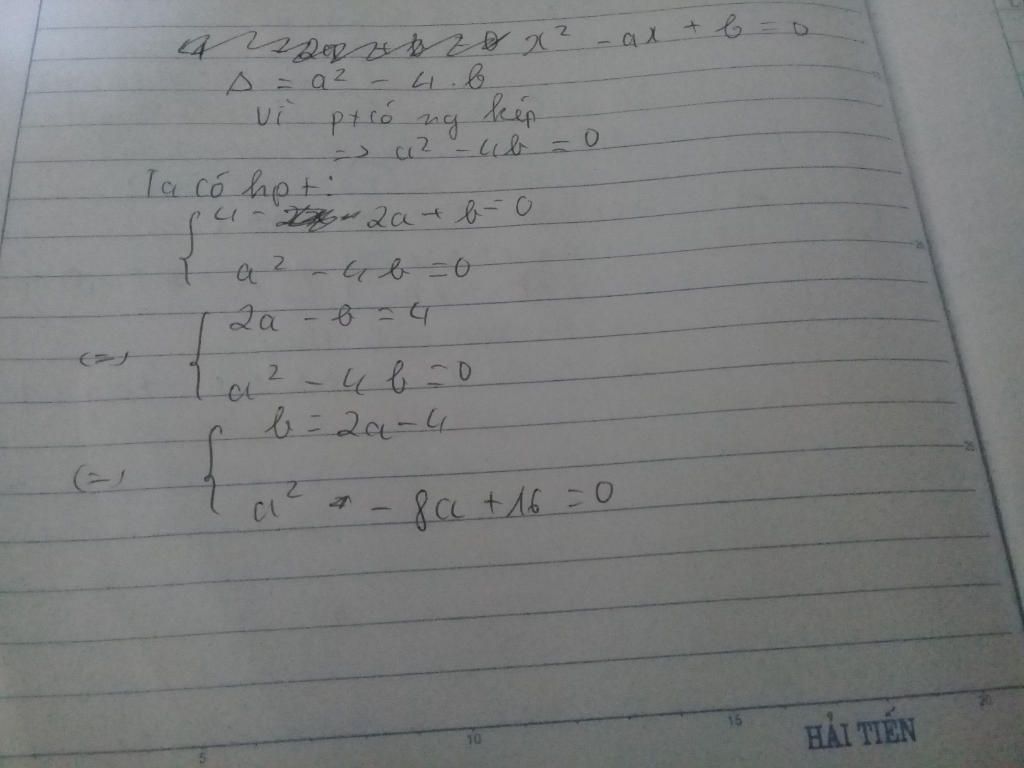 x² - ax + b = 0
Δ = a² - 4.b
Vì pt có ng kép
=> a² - 4b = 0
Ta có hpt:
{ 4 - 2a + b = 0
a² - 4b = 0
(=) { 2a - b = 4
a² - 4b = 0
(=) { b = 2a - 4
a² - 8a + 16 = 0
5 10 15 20
HẢI TIẾN